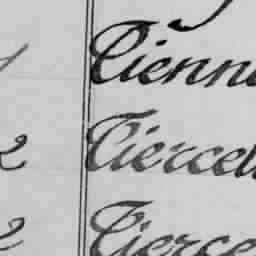 Tienne
2 Tiercel
2 Tierce